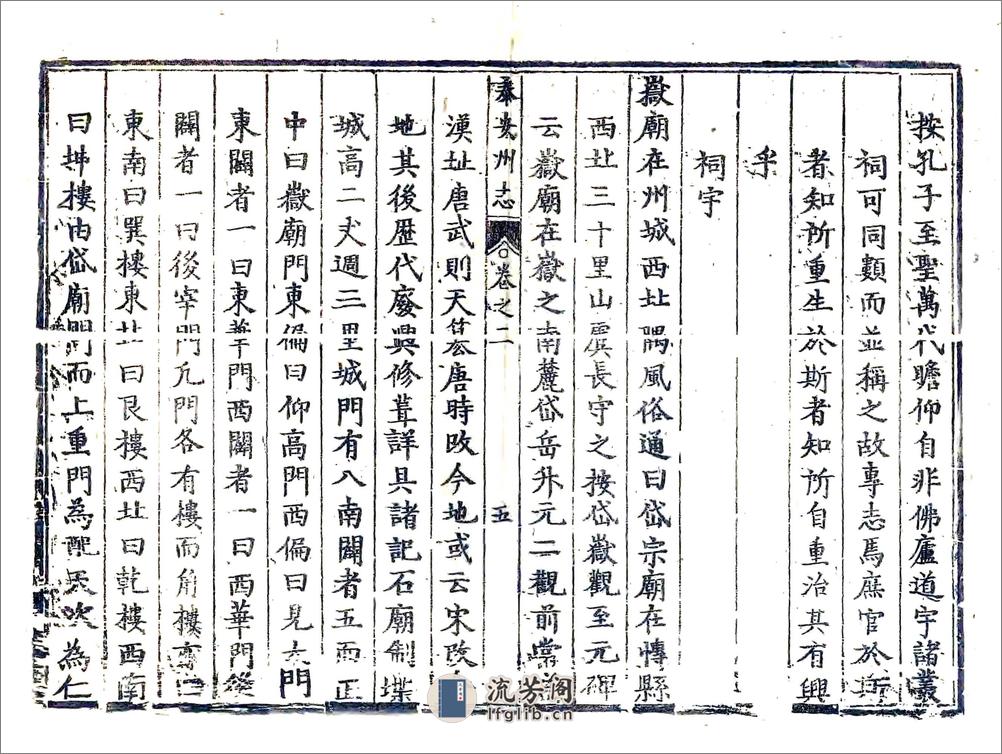 按孔子至聖萬代瞻仰自非佛廬道宇諸叢
祠可同類而並稱之故專志焉庶官於斯
者知所重生於斯者知所自重治其有興
乎
祠宇
嶽廟在州城西北隅風俗通曰岱宗廟在博縣
西北三十里山虞長守之按岱嶽觀至元碑
云嶽廟在嶽之南麓岱岳升元二觀前
泰安州志
卷之二
五
漢址唐武則天 唐時改今地或云宋改
地其後歷代廢興修葺詳具諸記石廟制堞
城高二丈週三里城門有八南闢者五而正
中曰嶽廟門東偏曰仰高門西偏曰見大門
東闢者一曰東華門西闢者一曰西華門後
闢者一曰後宰門凢門各有樓而角樓
東南曰巽樓東北曰艮樓西北曰乾樓西南
曰坤樓由岱廟門而上重門為配天次為仁
流芳阁
lfglib.cn